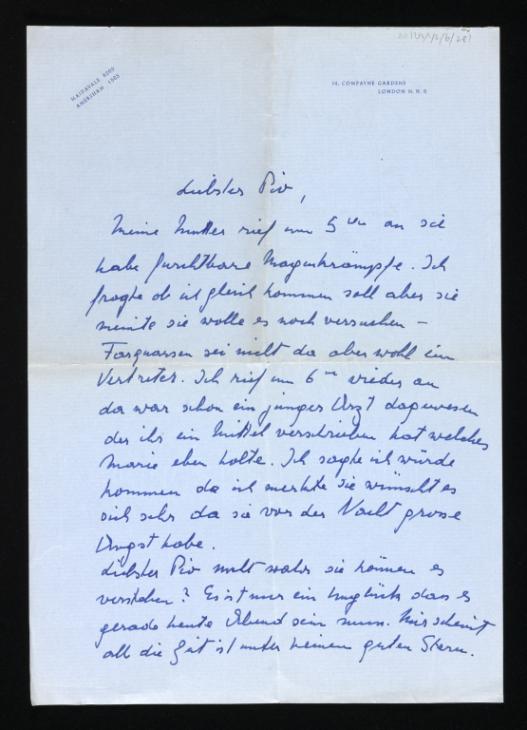 MAIDAVALE 8209
AMERSHAM 1903
14, COMPAYNE GARDENS
LONDON N.W.6
Liebster Pio,
Meine Mutter rief um 5 Uhr an sie
habe furchtbare Magenkrämpfe. Ich
fragte ob ich gleich kommen soll aber sie
meinte sie wolle es noch versuchen –
sei nicht da aber wohl ein
Vertreter. Ich rief um 6 Uhr wieder an
da war schon ein junger Arzt dagewesen
der ihr ein Mittel verschrieben hat welches
Marie eben holte. Ich sagte ich würde
kommen da ich merkte sie wünscht es
sich sehr da sie vor der Nacht grosse
Angst habe.
Liebster Pio nicht wahr sie können es
verstehen? Es ist nur ein Unglück das es
gerade heute Abend sein muss. Mir scheint
all die Zeit ist unter keinem guten Stern.